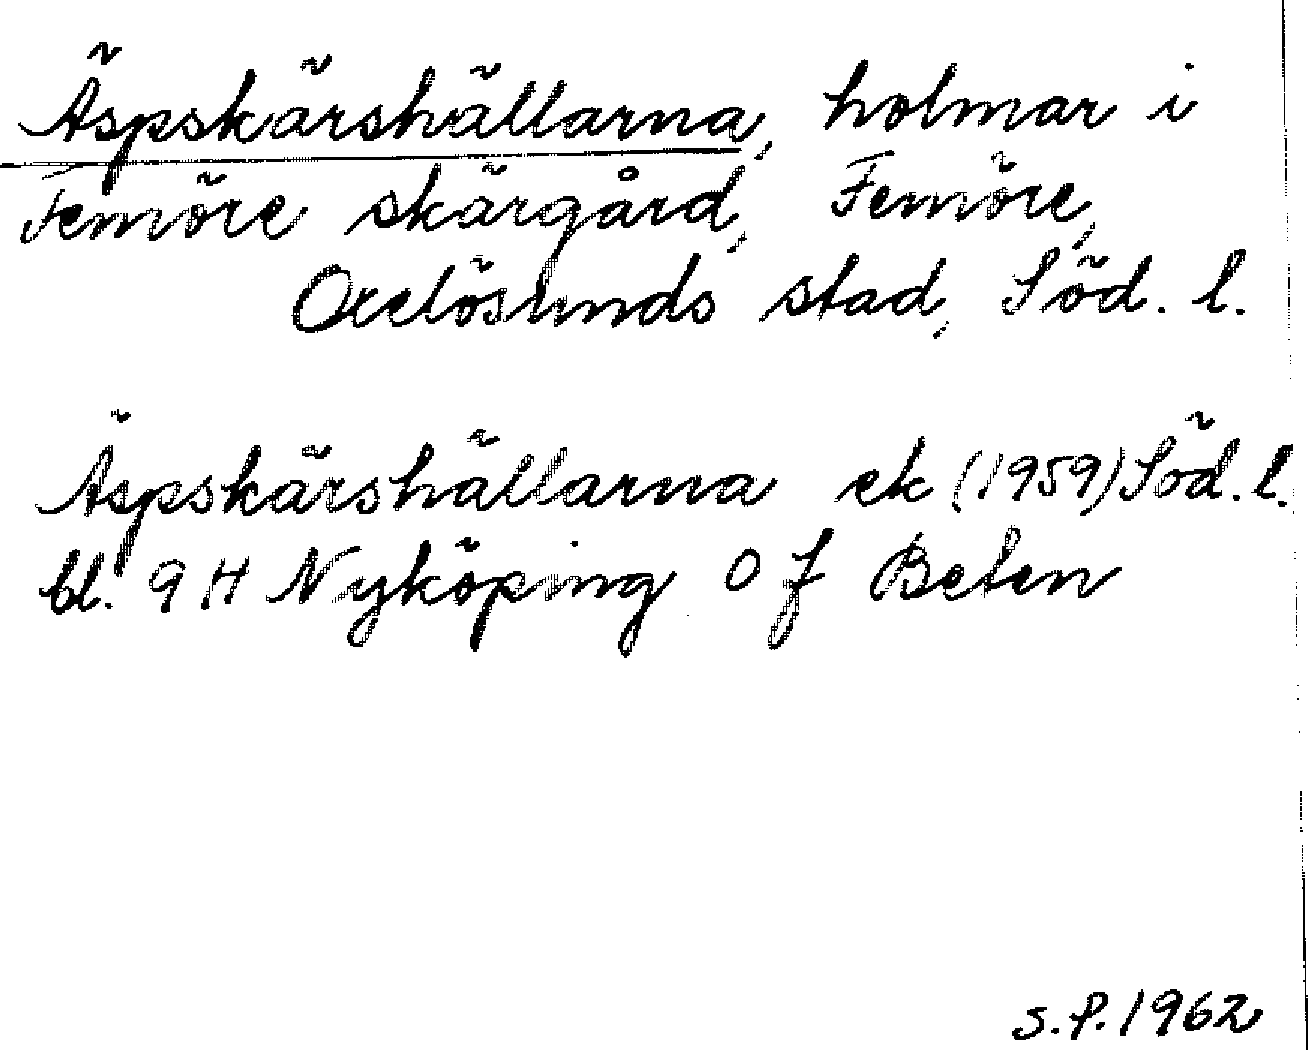 Äspskärshällarna, holmar i
Femöre skärgård, Femöre,
Oxelösunds stad, Söd. l.
Äspskärshällarna ek (1959) Söd. l.
bl. 9 H Nyköping 0 f Beten
S.P. 1962